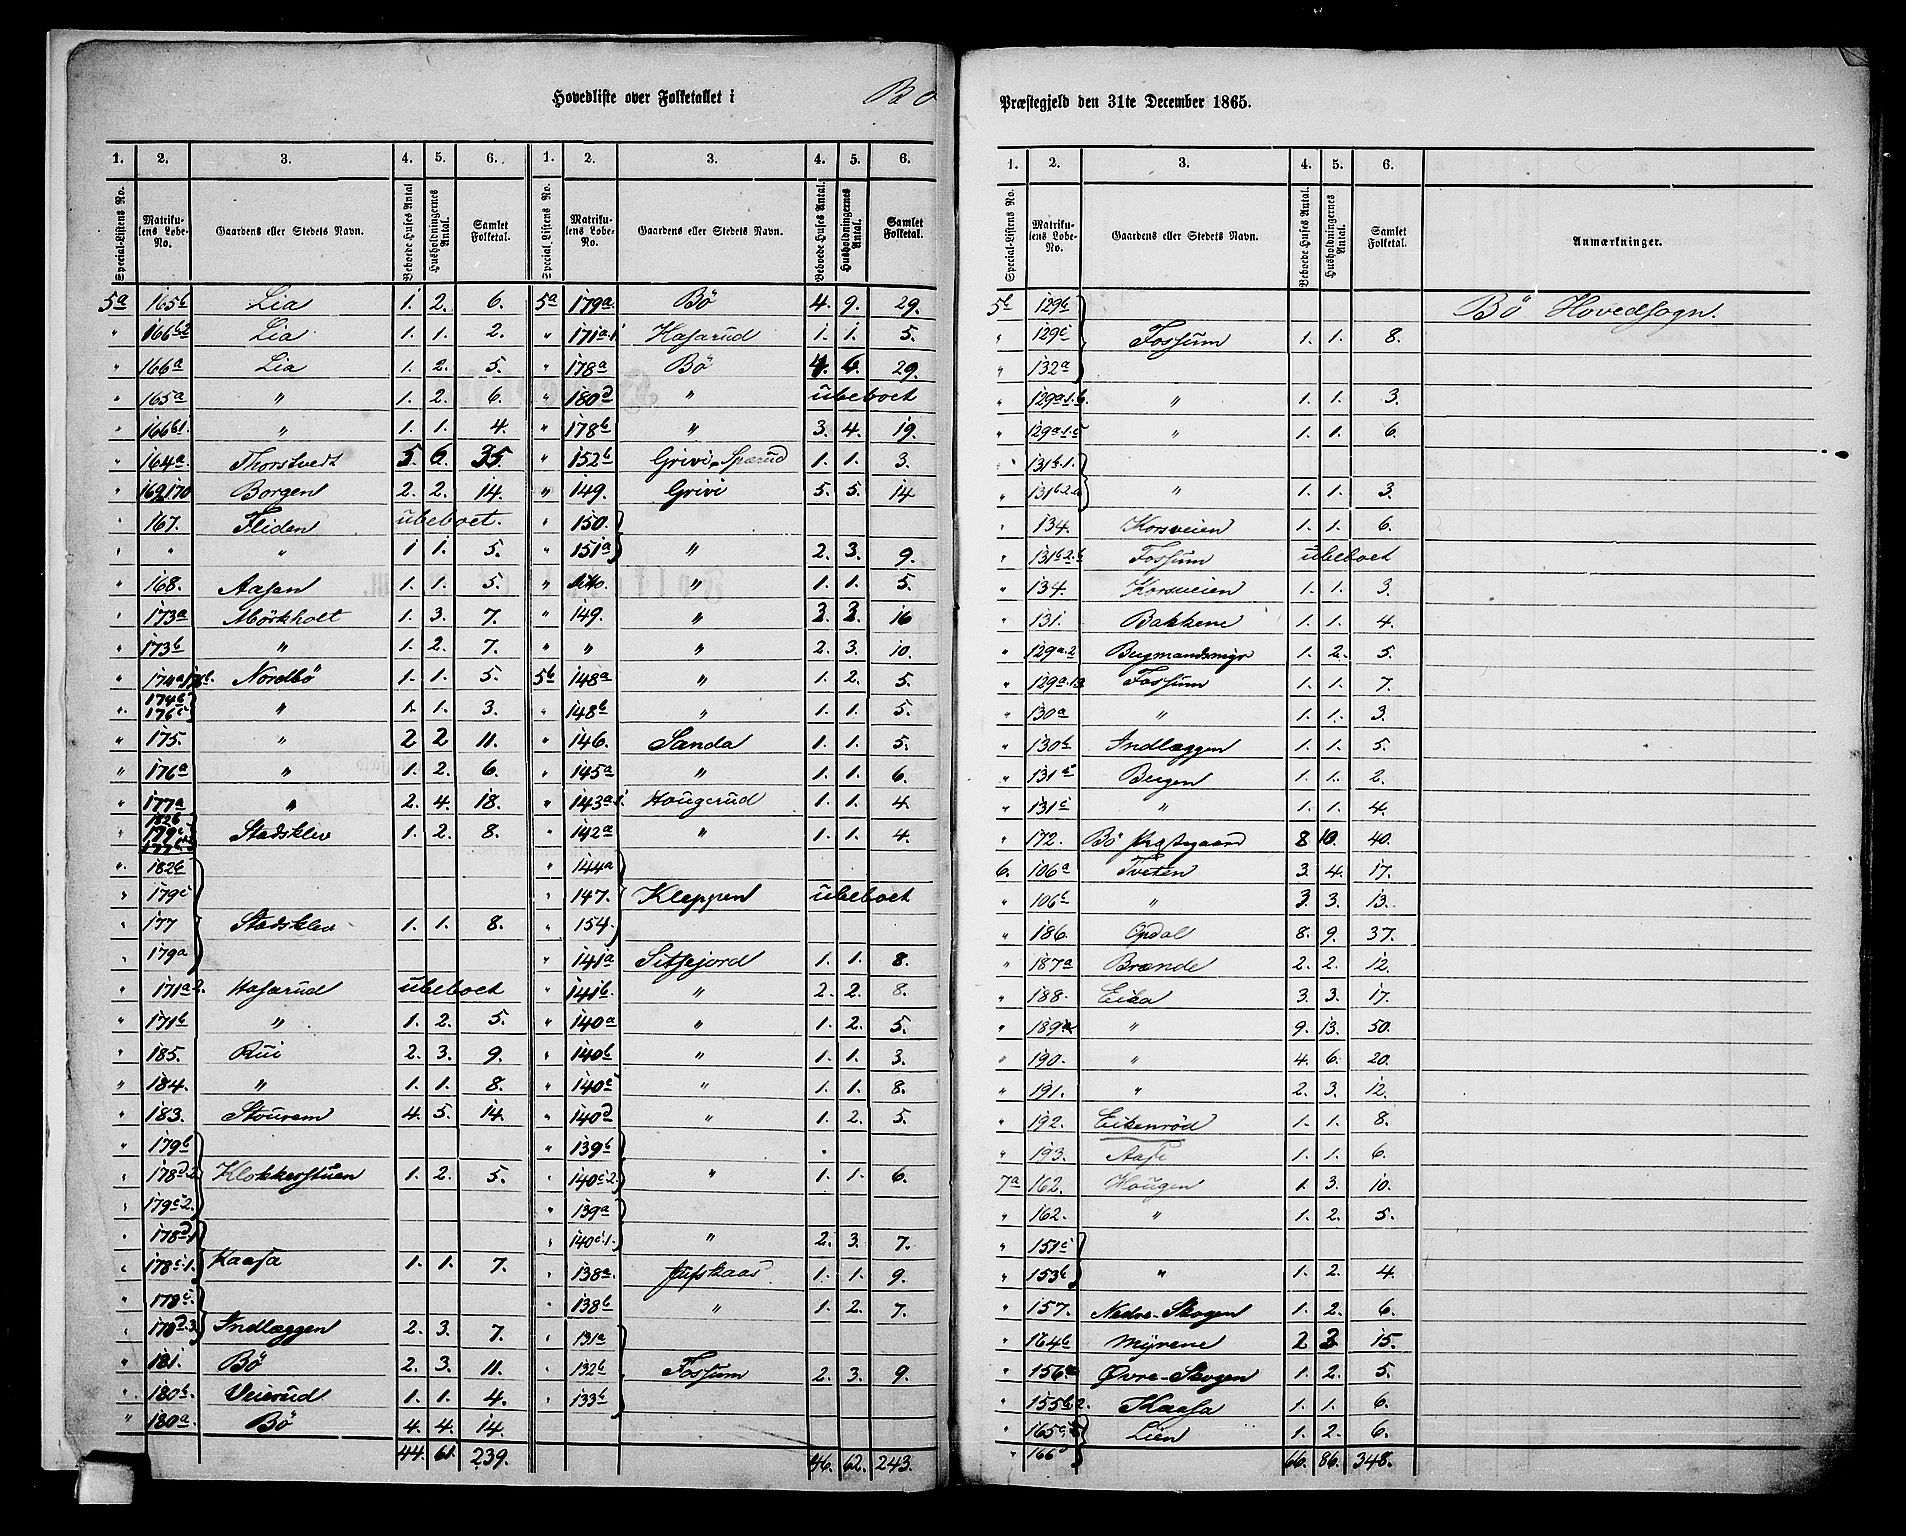 Hovedliste over Folketallet i Bö
Præstegjeld den 31te December 1865.
1. 2. 3. 4. 5. 6. 1. 2. 3. 4. 5. 6.
Special-Listens No. Matrikulens Lobe-No. Gaardens eller Stedets Navn. Beboede Huses Antal Husholdningernes Antal. Samlet Folketal. Special-Listens No. Matrikulens Lobe-No. Gaardens eller Stedets Navn. Beboede Huses Antal. Husholdningernes Antal. Samlet Folketal.
5a 165b Lia 1. 2. 6. 5a 179a Bö 4. 9. 29.
" 166b2 Lia 1. 1. 2. " 171a.1 Hafarud 1. 1. 5.
" 166a Lia 1. 2. 5. " 178a Bö 4. 6. 29.
" 165a " 1. 2. 6. " 180d " ubeboet
" 166b1. " 1. 1. 4. " 178b " 3. 4. 19.
" 164a Thorstvedt 5. 6. 35. " 152b Grivi-Sperud 1. 1. 3.
" 169,170 Borgen 2. 2. 14. " 149. Grivi 5. 5. 14
" 167. Fliden ubeboet. " 150.
" " " 1 1. 5. " 151a " 2. 3. 9.
" 168. Aasen 1. 1. 5. " " 1. 1. 5.
" 173a Mörkholt 1. 3. 7. " 149. " 16
" 173b " 1. 2. 7. " " " 2. 3. 10.
" 174a Nordbö 1. 1. 5. 5b 148a " 1. 2. 5.
" 174b 176c " 1. 1. 3. " 148b " 1. 1. 5.
" 175. " 2 2 11. " 146. Sanda 1. 1. 5.
" 176a " 1. 2. 6. " 145a " 1. 1. 6.
" 177a " 2. 4. 18. " 143a.1. Hougerud 1. 1. 4.
" 182b 179c Stadsklev 1. 2. 8. " 142a " 1. 1. 4.
" 182b " 144a
" 179c " 147. Kleppen ubeboet
" 177 Stadsklev 1. 1. 8. " 154.
" 179a " 141a Sitsejord 1. 1. 8.
" 171a.2. Hafarud ubeboet " 141b. " 2. 2. 8.
" 171b " 1. 2. 5. " 140a " 1. 2. 5.
" 185. Rui 2. 3. 9. " 140b " 1. 1. 3.
" 184. " 1. 1. 8. " 140c " 1. 1. 8.
" 183. Stourem 4. 5. 14. " 140d " 1. 2. 5.
" 179b " 139b
" 178d.2. Klokkerstuen 1. 2. 5. " 140c.2. " 1. 1. 6.
" 179c.2. " 139a
" 178d.1 " 140c.1. " 2. 3. 7.
" 178c.1. Kaasa 1. 1. 7. " 138a Jufskaas 1. 1. 9.
" 178c. " 138b " 1. 2. 7.
" 178d.3. Indlæggen 2. 3. 7. " 131a
" 181. Bö 2. 3. 11. " 132b Fossum 2. 3. 9.
" 180b. Veierud 1. 1. 4. " 133b
" 180a. Bö 4. 4. 14.
44. 61. 239. 46. 62. 243.
1. 2. 3. 4. 5. 6.
Special-Listens No. Matrikulens Lobe-No. Gaardens eller Stedets Navn. Beboede Huses Antal. Husholdningernes Antal. Samlet Folketal. Anmærkninger.
5b 129b Bö Hovedsogn.
" 129c Fossum 1. 1. 8.
" 132a
" 129a.1.b. " 1. 1. 3.
" 129a.1.c " 1. 1. 6.
" 131b.1.
" 131b.2.a " 1. 1. 3.
" 134. Korsveien 1. 1. 6.
" 131b.2.b Fossum ubeboet
" 134. Korsveien 1. 1. 3.
" 131. Bakkene 1. 1. 4.
" 129a.2 Bergmandsmyr 1. 2. 5.
" 129a.13. Fossum 1. 1. 7.
" 130a " 1. 1. 3.
" 130b Indlæggen 1. 1. 5.
" 131 Bergen 1. 1. 2.
" 131c " 1. 1. 4.
" 172. Bö Præstegaard 8 10. 40.
6. 106a Tveten 3. 4. 17.
" 106b " 3. 3. 13.
" 186. Opdal 8. 9. 37.
" 187a Brænde 2. 2. 12.
" 188. Eika 3. 3. 17.
" 189a " 9. 13. 50.
" 190. " 4. 6. 20.
" 191. " 2. 3. 12.
" 192. Eikenröd 1. 1. 8.
" 193. Aase 1. 1. 6.
7a 162. Hougen 1. 3. 10.
" 162. " 1. 2. 5.
" 151c
" 153b " 1. 2. 4.
" 157. Nedre-Skogen 1. 2. 6.
" 164b Myrene 2 3. 15.
" 156a Øvre-Skogen 1. 2. 5.
" 155b.2. Kaasa 1. 1. 6.
" 165 Lien 1. 2. 6.
" 166
66. 86. 348.